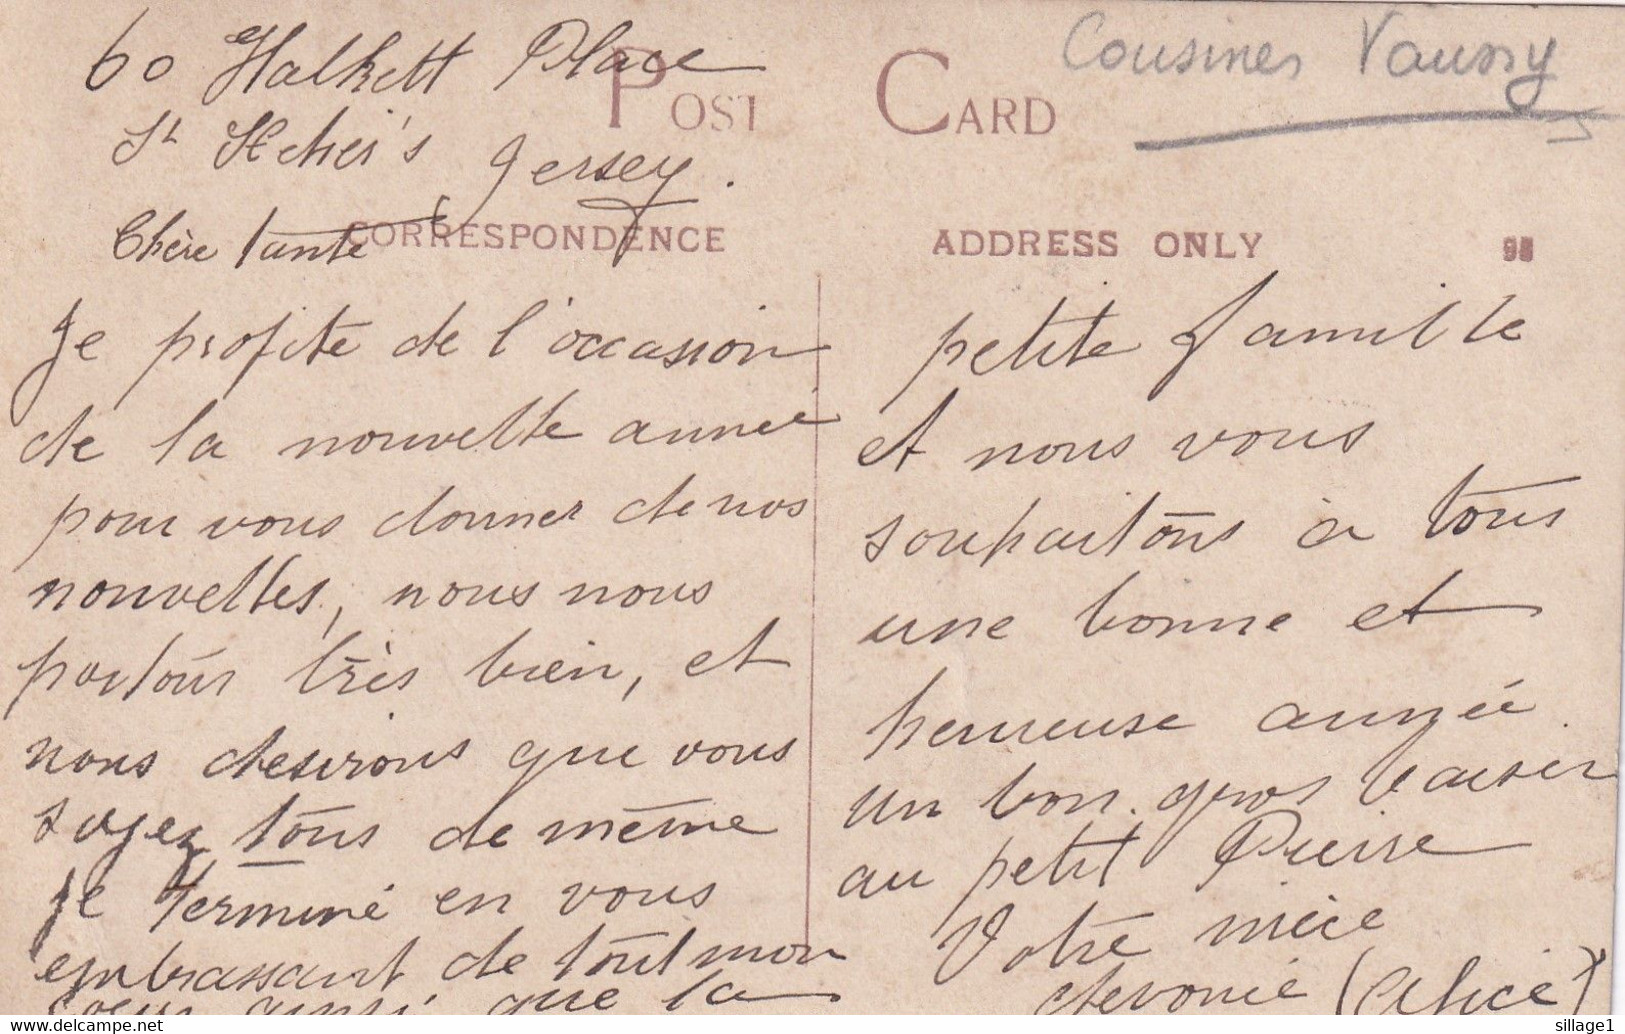 60 Halkett Place
St Helier's Jersey.
POST CARD
Cousines Vaussy
CORRESPONDENCE
ADDRESS ONLY
Chère tante
Je profite de l'occasion
de la nouvelle année
pour vous donner de nos
nouvelles, nous nous
portons très bien, et
nous desirons que vous
soyez tous de même
je terminé en vous
embrassant de tout mon
coeur ainsi que la
petite famille
et nous vous
souhaitons a tous
une bonne et
heureuse année.
un bon gros baiser
au petit Pierre
Votre nièce
(Alice)
sillage1
www.delcampe.net